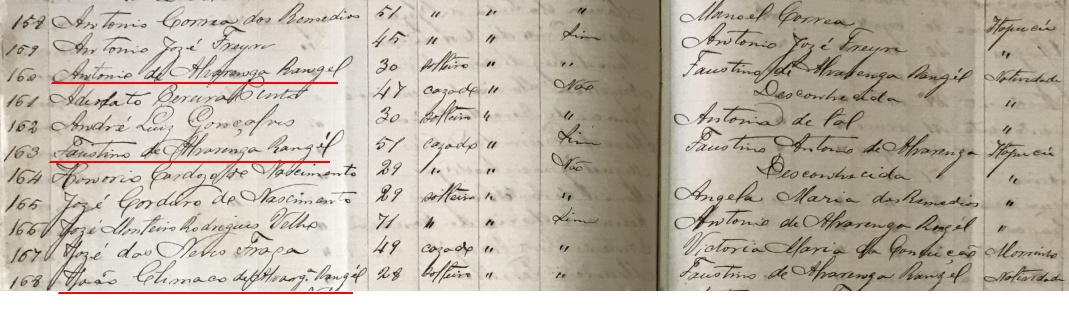 158 Antonio Correa dos Remedios 51 " " Manoel Correa Itapucú
159 Antonio Jozé Freyre 45 " " Sim Antonio Jozé Freyre "
160 Antonio de Alvarenga Rangel 30 solteiro " " Faustino de Alvarenga Rangél Natividade
161 Pereira Pinto 47 cazado " Não Desconhecida "
162 André Luiz Gonçalves 30 solteiro " Antonia de Tal "
163 Faustino de Alvarenga Rangél 51 cazado " Sim Faustino Antonio de Alvarenga Itapucú
164 Honorio Cardozo de Nascimento 29 " " Não Desconhecida "
165 Jozé Cordura de Nascimento 29 solteiro " " Angela Maria dos Remedios "
166 Jozé Monteiro Rodrigues Velho 71 " " Sim Antonio de Alvarenga Rangél "
167 Jozé das Neves Fraga 49 cazado " " Victoria Maria da Conceição Morrinho
168 João Climaco de Alvarg.ª Rangél 28 solteiro " " Faustino de Alvarenga Rangél Natividade